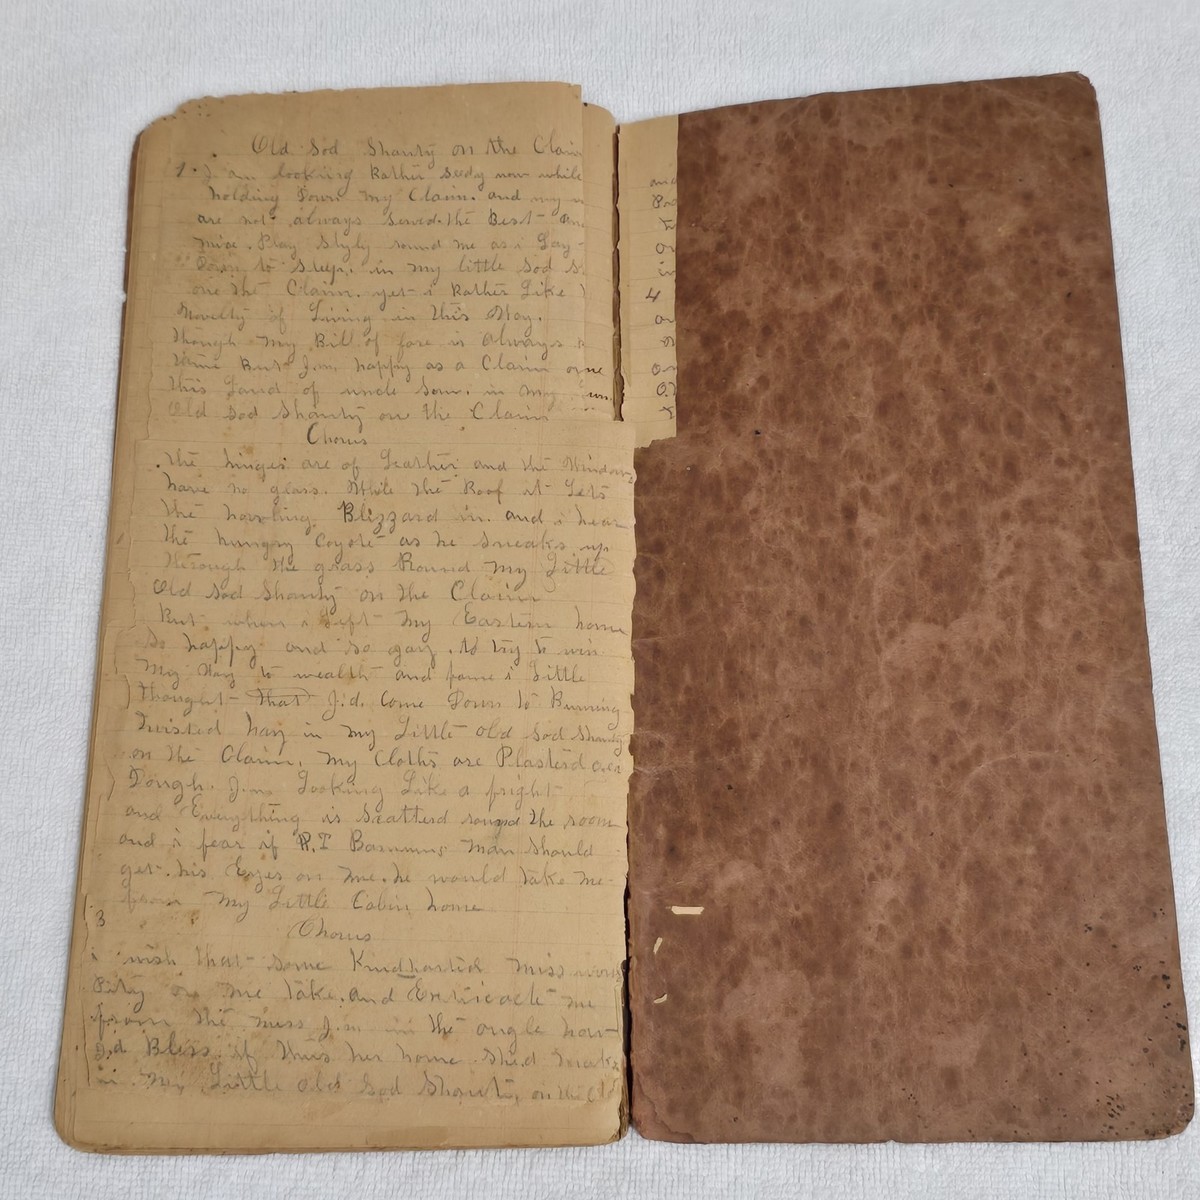 Old Sod Shanty on the Claim
1. I am looking Rather Seedy now while
holding Down my Claim. and my
are not always Served. the Best
mice. Play Slyly round me as i Lay
Down to Sleep. in my little Sod
one the Claim. yet i Rather Like
Novelty of Living in this Way.
though my Bill of fare is always
tame But I.m. happy as a Claim
this Land of uncle Sam. in my
Old Sod Shanty one the Claim
Chorus
the hinges are of Leather and the Windows
have no glass. While the Roof it Lets
the howling Blizzard in. and i hear
the hungry Coyote as he Sneaks up
through the grass Round my Little
Old Sod Shanty on the Claim
But when i Left my Eastern home
So happy and so gay. to try to win
My Way to wealth and fame i Little
thought that I.d. Come Down to Burning
twisted hay in my Little old Sod Shanty
on the Claim. my Cloths are Plasterd over
Dough. I.m Looking Like a fright
and Everything is Scatterd round the room
and i fear if P.T Barnums man Should
get. his Eyes on me. he would take me
from My Little Cabin home
3
Chorus
i wish that Some Kindharted miss
Pity on me take. and me
from the mess I.m in the
I.d Bless if this her home She.d
in My Little Old Sod Shanty, on the
and
in
4